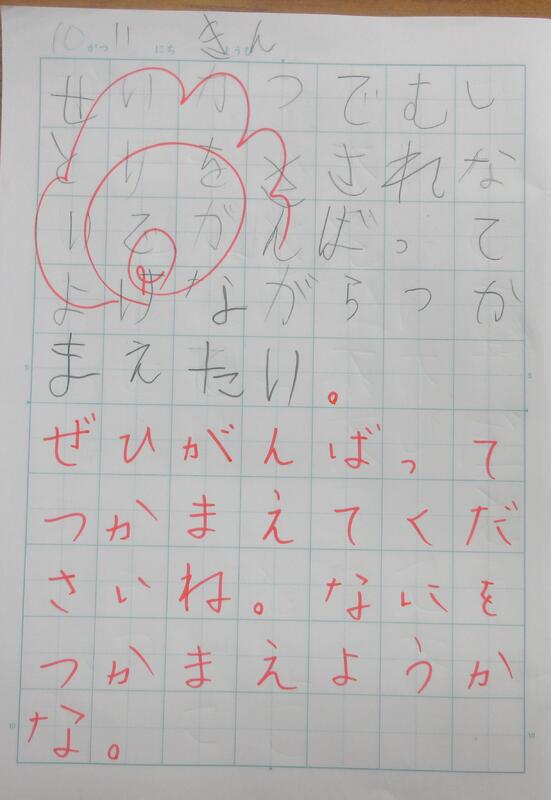 10 がつ 11 にち きん ようび
せいかつでむし
とりをささされな
いでがんばって
よげながらつか
まえたい。
ぜひがんばって
つかまえてくだ
さいね。なにを
つかまえようか
な。